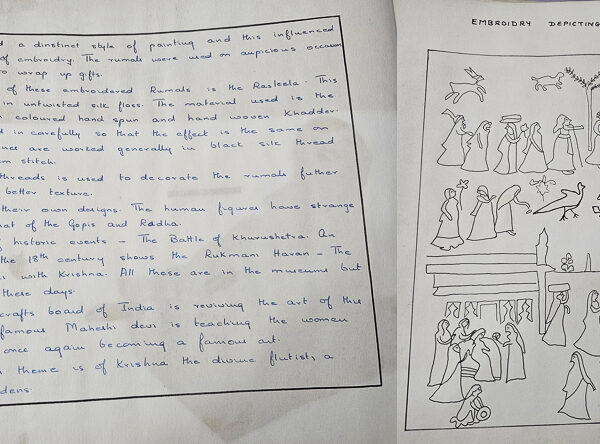 a dinstinct style of painting and this influenced
of embroidry. The rumals were used on aupicious occasion
to wrap up gifts.
of these embroidered Rumals is the Rasleela. This
in untwisted silk floss. The material used is the
coloured hand spun and hand woven Khadder.
in carefully so that the effect is the same on
are worked generally in black silk thread
stitch.
threads is used to decorate the rumals futher
better texture.
their own designs. The human figures have strange
of the Gopis and Radha.
historic events – The Battle of Khurushetra. An
the 18th century shows the Rukmani Haran – The
with Krishna. All these are in the museums but
these days.
crafts board of India is reviving the art of this
famous Maheshi devi is teaching the women
once again becoming a famous art.
theme is of Krishna the divine flutist, a
EMBROIDRY DEPICTING